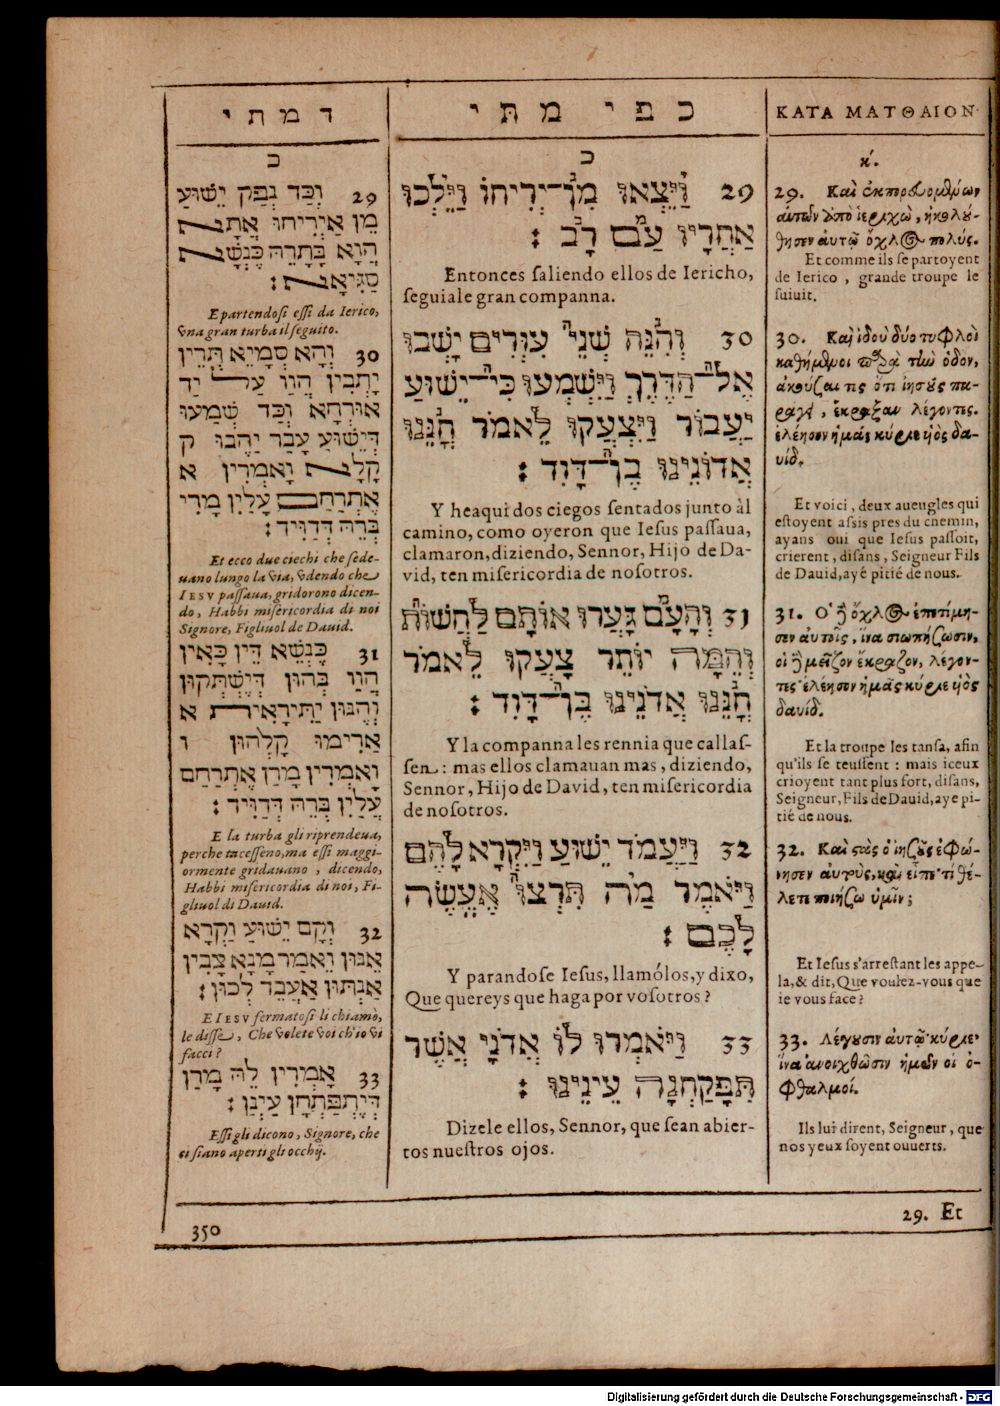 ד מ ת י
כ
29 וְכַד נְפַק יֵשׁוּעַ
מֵן אִירִיחוֹ אֲתָת
הֲוָא בָּתְרֵהּ כֶּנְשָׁא
סַגִּיאָא׃
E partendosi essi da Ierico,
vna gran turba il seguito.
30 וְהָא סְמָיֵא תְּרֵין
יָתְבִין הֲווֹ עַל יַד
אוּרְחָא וְכַד שְׁמַעוּ
דְּיֵשׁוּעַ עָבַר יַהֲבוּ ק
קָלָא וָאמְרִין א
אֶתְרַחַם עֲלַיִן מָרִי
בְּרֵהּ דְּדַוִּיד׃
Et ecco due ciechi che sede-
uano lungo la via, vdendo che
IESV passaua, gridorono dicen-
do, Habbi misericordia di noi
Signore, Figliuol de Dauid.
31 כֶּנְשֵׁא דֵּין כָּאֵין
הֲווֹ בְּהוּן דְּיֶשְׁתְּקוּן
וְהֶנּוּן יַתִּירָאִית א
אֲרִימוּ קָלְהוּן ו
וָאמְרִין מָרַן אֶתְרַחַם
עֲלַיִן בְּרֵהּ דְּדַוִּיד׃
E la turba gli riprendeua,
perche tacesseno, ma essi maggi-
ormente gridauano, dicendo,
Habbi misericordia di noi, Fi-
gliuol di Dauid.
32 וְקָם יֵשׁוּעַ וַקְרָא
אֵנּוּן וֵאמַר מָנָא צָבִין
אַנְתּוּן אֶעְבֵּד לְכוּן׃
E IESV fermatosi li chiamò,
le disse, Che volete voi ch'io vi
facci?
33 אָמְרִין לֵהּ מָרַן
דְּיֶתְפַּתְחָן עַיְנַן׃
Essi gli dicono, Signore, che
ci siano aperti gli occhij.
כ פ י מ תּ י
כ
29 וַיֵּצְאוּ מִן־יְרִיחוֹ וַיֵּלְכוּ
אַחֲרָיו עַם רָב׃
Entonces saliendo ellos de Iericho,
seguiale gran companna.
30 וְהִנֵּה שְׁנֵי עִוְרִים יָשְׁבוּ
אֶל־הַדֶּרֶךְ וַיִּשְׁמְעוּ כִּי־יֵשׁוּעַ
יַעֲבוֹר וַיִּצְעֲקוּ לֵאמֹר חָנֵּנוּ
אֲדוֹנֵינוּ בֶּן־דָּוִד׃
Y heaqui dos ciegos sentados junto àl
camino, como oyeron que Iesus passaua,
clamaron, diziendo, Sennor, Hijo de Da-
vid, ten misericordia de nosotros.
31 וְהָעָם גָּעֲרוּ אוֹתָם לַחֲשׁוֹת
וְהֵמָּה יוֹתֵר צָעֲקוּ לֵאמֹר
חָנֵּנוּ אֲדֹנֵינוּ בֶּן־דָּוִד׃
Y la companna les rennia que callas-
sen: mas ellos clamauan mas, diziendo,
Sennor, Hijo de David, ten misericordia
de nosotros.
32 וַיַּעֲמֹד יֵשׁוּעַ וַיִּקְרָא לָהֶם
וַיֹּאמֶר מַה תִּרְצוּ אֶעֱשֶׂה
לָכֶם׃
Y parandose Iesus, llamólos, y dixo,
Que quereys que haga por vosotros?
33 וַיֹּאמְרוּ לוֹ אֲדֹנָי אֲשֶׁר
תִּפָּקַחְנָה עֵינֵינוּ׃
Dizele ellos, Sennor, que sean abier-
tos nuestros ojos.
ΚΑΤΑ ΜΑΤΘΑΙΟΝ
κ'.
29. Καὶ ἐκπορευομένων
αὐτῶν ἀπὸ ἱεριχὼ, ἠκολού-
θησεν αὐτῷ ὄχλος πολύς.
Et comme ils se partoyent
de Ierico, grande troupe le
suiuit.
30. Καὶ ἰδοὺ δύο τυφλοὶ
καθήμενοι παρὰ τὴν ὁδὸν,
ἀκούσαντες ὅτι ἰησοῦς πα-
ράγει, ἔκραξαν λέγοντες.
ἐλέησον ἡμᾶς κύριε υἱὸς δα-
υίδ.
Et voici, deux aueugles qui
estoyent assis pres du chemin,
ayans oui que Iesus passoit,
crierent, disans, Seigneur Fils
de Dauid, ayé pitié de nous.
31. Ὁ δὲ ὄχλος ἐπετίμη-
σεν αὐτοῖς, ἵνα σιωπήσωσιν,
οἱ δὲ μεῖζον ἔκραζον, λέγον-
τες ἐλέησον ἡμᾶς κύριε υἱὸς
δαυίδ.
Et la troupe les tansa, afin
qu'ils se teussent: mais iceux
crioyent tant plus fort, disans,
Seigneur, Fils de Dauid, aye pi-
tié de nous.
32. Καὶ στὰς ὁ ἰησοῦς ἐφώ-
νησεν αὐτοὺς, καὶ εἶπε· τί θέ-
λετε ποιήσω ὑμῖν;
Et Iesus s'arrestant les appe-
la, & dit, Que voulez-vous que
ie vous face?
33. Λέγουσιν αὐτῷ· κύριε
ἵνα ἀνοιχθῶσιν ἡμῶν οἱ ὀ-
φθαλμοί.
Ils lui dirent, Seigneur, que
nos yeux soyent ouuerts.
350
29. Et
Digitalisierung gefördert durch die Deutsche Forschungsgemeinschaft - DFG